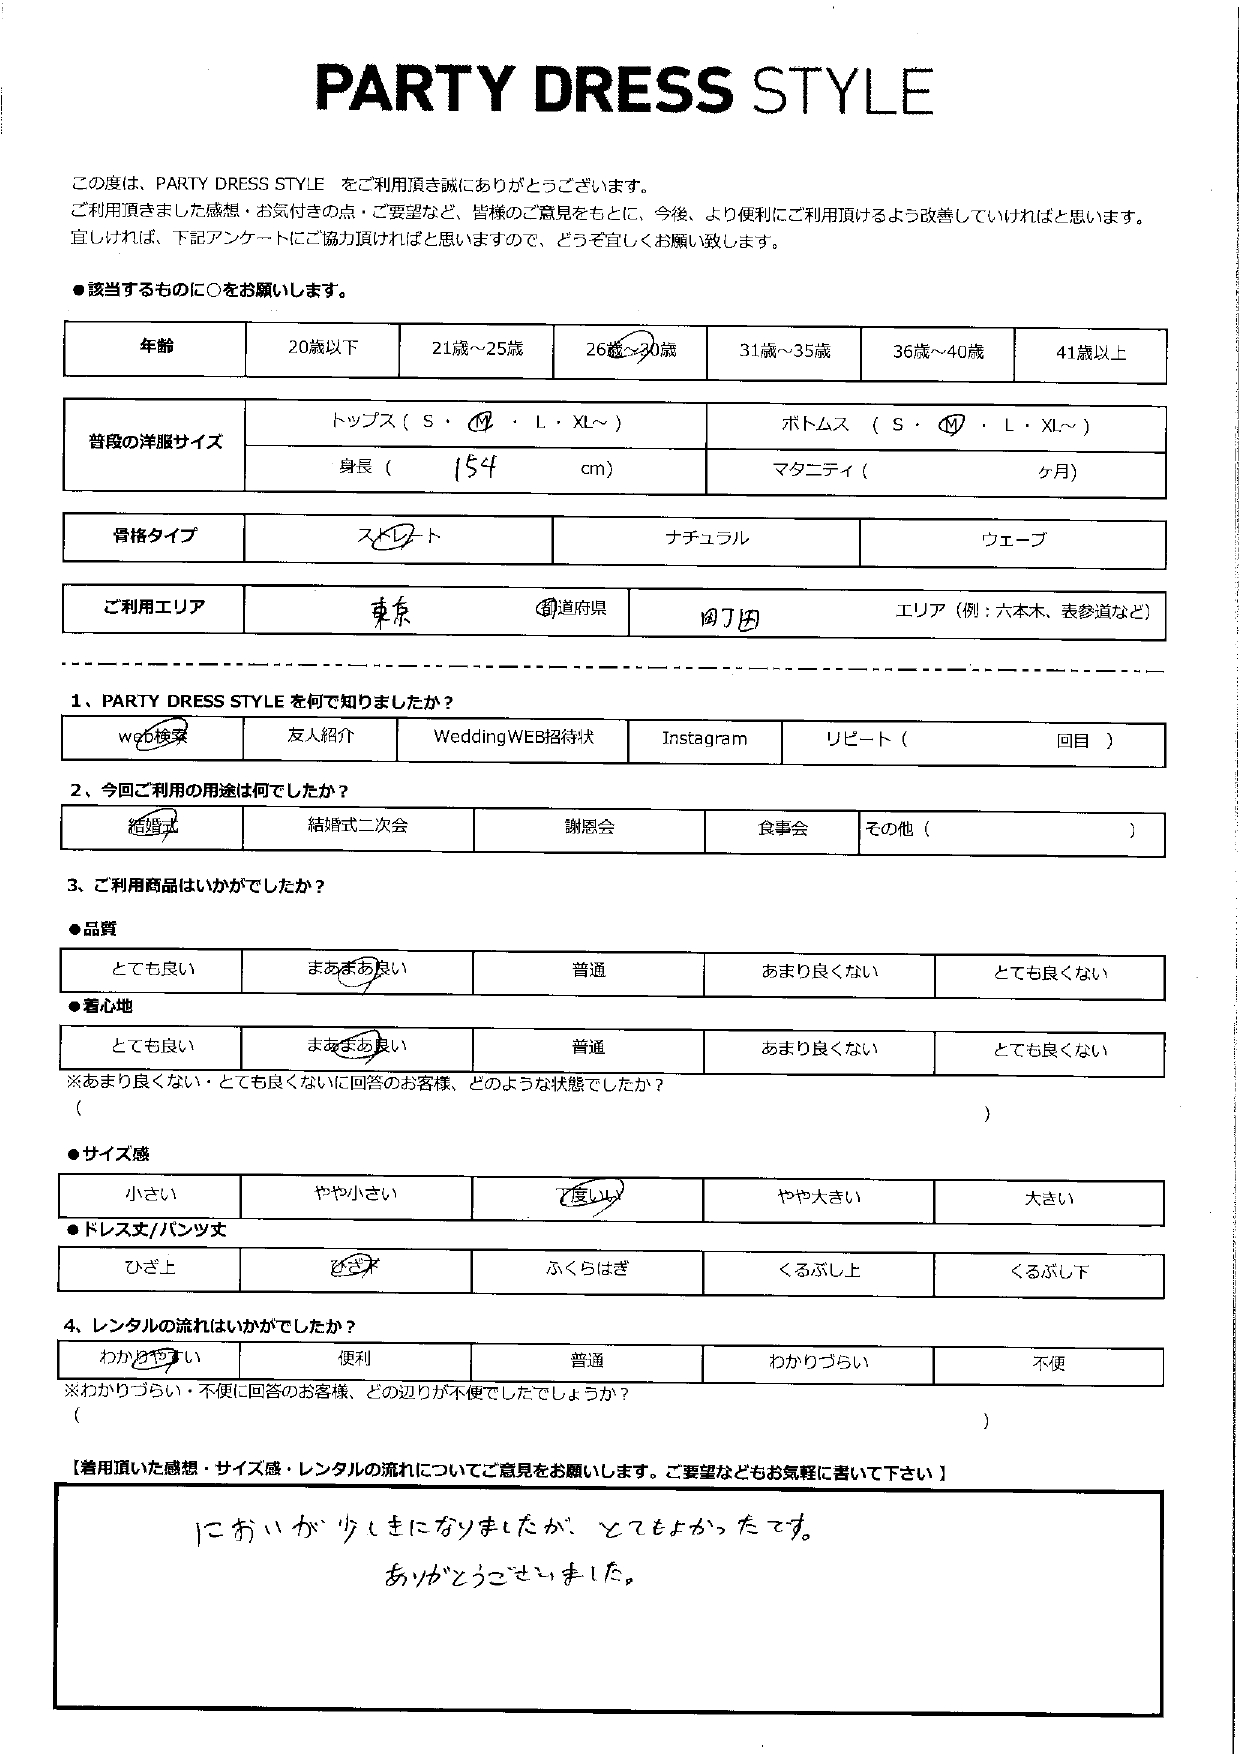 PARTY DRESS STYLE
この度は、PARTY DRESS STYLE をご利用頂き誠にありがとうございます。
ご利用頂きました感想・お気付きの点・ご要望など、皆様のご意見をもとに、今後、より便利にご利用頂けるよう改善していければと思います。
宜しければ、下記アンケートにご協力頂ければと思いますので、どうぞ宜しくお願い致します。
●該当するものに○をお願いします。
年齢 20歳以下 21歳～25歳 26歳～30歳 31歳～35歳 36歳～40歳 41歳以上
普段の洋服サイズ
トップス ( S ・ M ・ L ・ XL～ ) ボトムス ( S ・ M ・ L ・ XL～ )
身長 ( 154 cm) マタニティ ( ヶ月)
骨格タイプ ストレート ナチュラル ウェーブ
ご利用エリア 東京 都道府県 町田 エリア（例：六本木、表参道など）
1、PARTY DRESS STYLE を何で知りましたか？
web検索 友人紹介 WeddingWEB招待状 Instagram リピート ( 回目 )
2、今回ご利用の用途は何でしたか？
結婚式 結婚式二次会 謝恩会 食事会 その他 ( )
3、ご利用商品はいかがでしたか？
●品質
とても良い まあまあ良い 普通 あまり良くない とても良くない
●着心地
とても良い まあまあ良い 普通 あまり良くない とても良くない
※あまり良くない・とても良くないに回答のお客様、どのような状態でしたか？
( )
●サイズ感
小さい やや小さい 丁度いい やや大きい 大きい
●ドレス丈/パンツ丈
ひざ上 ひざ下 ふくらはぎ くるぶし上 くるぶし下
4、レンタルの流れはいかがでしたか？
わかりやすい 便利 普通 わかりづらい 不便
※わかりづらい・不便に回答のお客様、どの辺りが不便でしたでしょうか？
( )
【着用頂いた感想・サイズ感・レンタルの流れについてご意見をお願いします。ご要望などもお気軽に書いて下さい】
においが少しきになりましたが、とてもよかったです。
ありがとうございました。